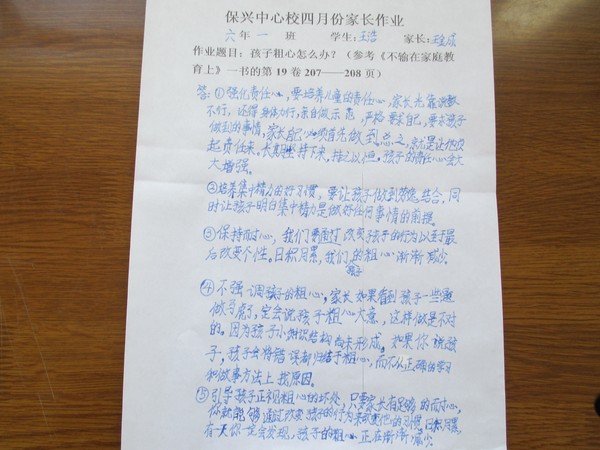 保兴中心校四月份家长作业
六 年 一 班 学生：王浩 家长：
作业题目：孩子粗心怎么办？（参考《不输在家庭教
育上》一书的第19卷207——208页）
答：①强化责任心，要培养儿童的责任心，家长光靠说教
不行，还得身体力行，亲自做示范，严格要求自己，要求孩子
做到的事情，家长自己必须首先做到总之，就是让他负
起责任来。长期坚持下来，持之以恒。孩子的责任心会大
大增强。
②培养集中精力的好习惯，要让孩子做到劳逸结合。同
时让孩子明白集中精力是做好任何事情的前提。
③保持耐心，我们要通过改变孩子的行为以至于最
后改变个性。日积月累，我们的孩子粗心渐渐减少。
④不强调孩子的粗心，家长如果看到孩子一些题
做马虎了，定会说孩子粗心大意，这样做是不对
的。因为孩子小知识结构尚未形成，如果你说孩
子，孩子会将错误都归结于粗心，而不从正确的学习
和做事方法上找原因。
⑤引导孩子正视粗心的坏处，只要家长有足够的耐心，
你就能够通过改变孩子的行为来改变他的习惯，日积月累，
有一天你一定会发现，孩子的粗心正在渐渐减少。